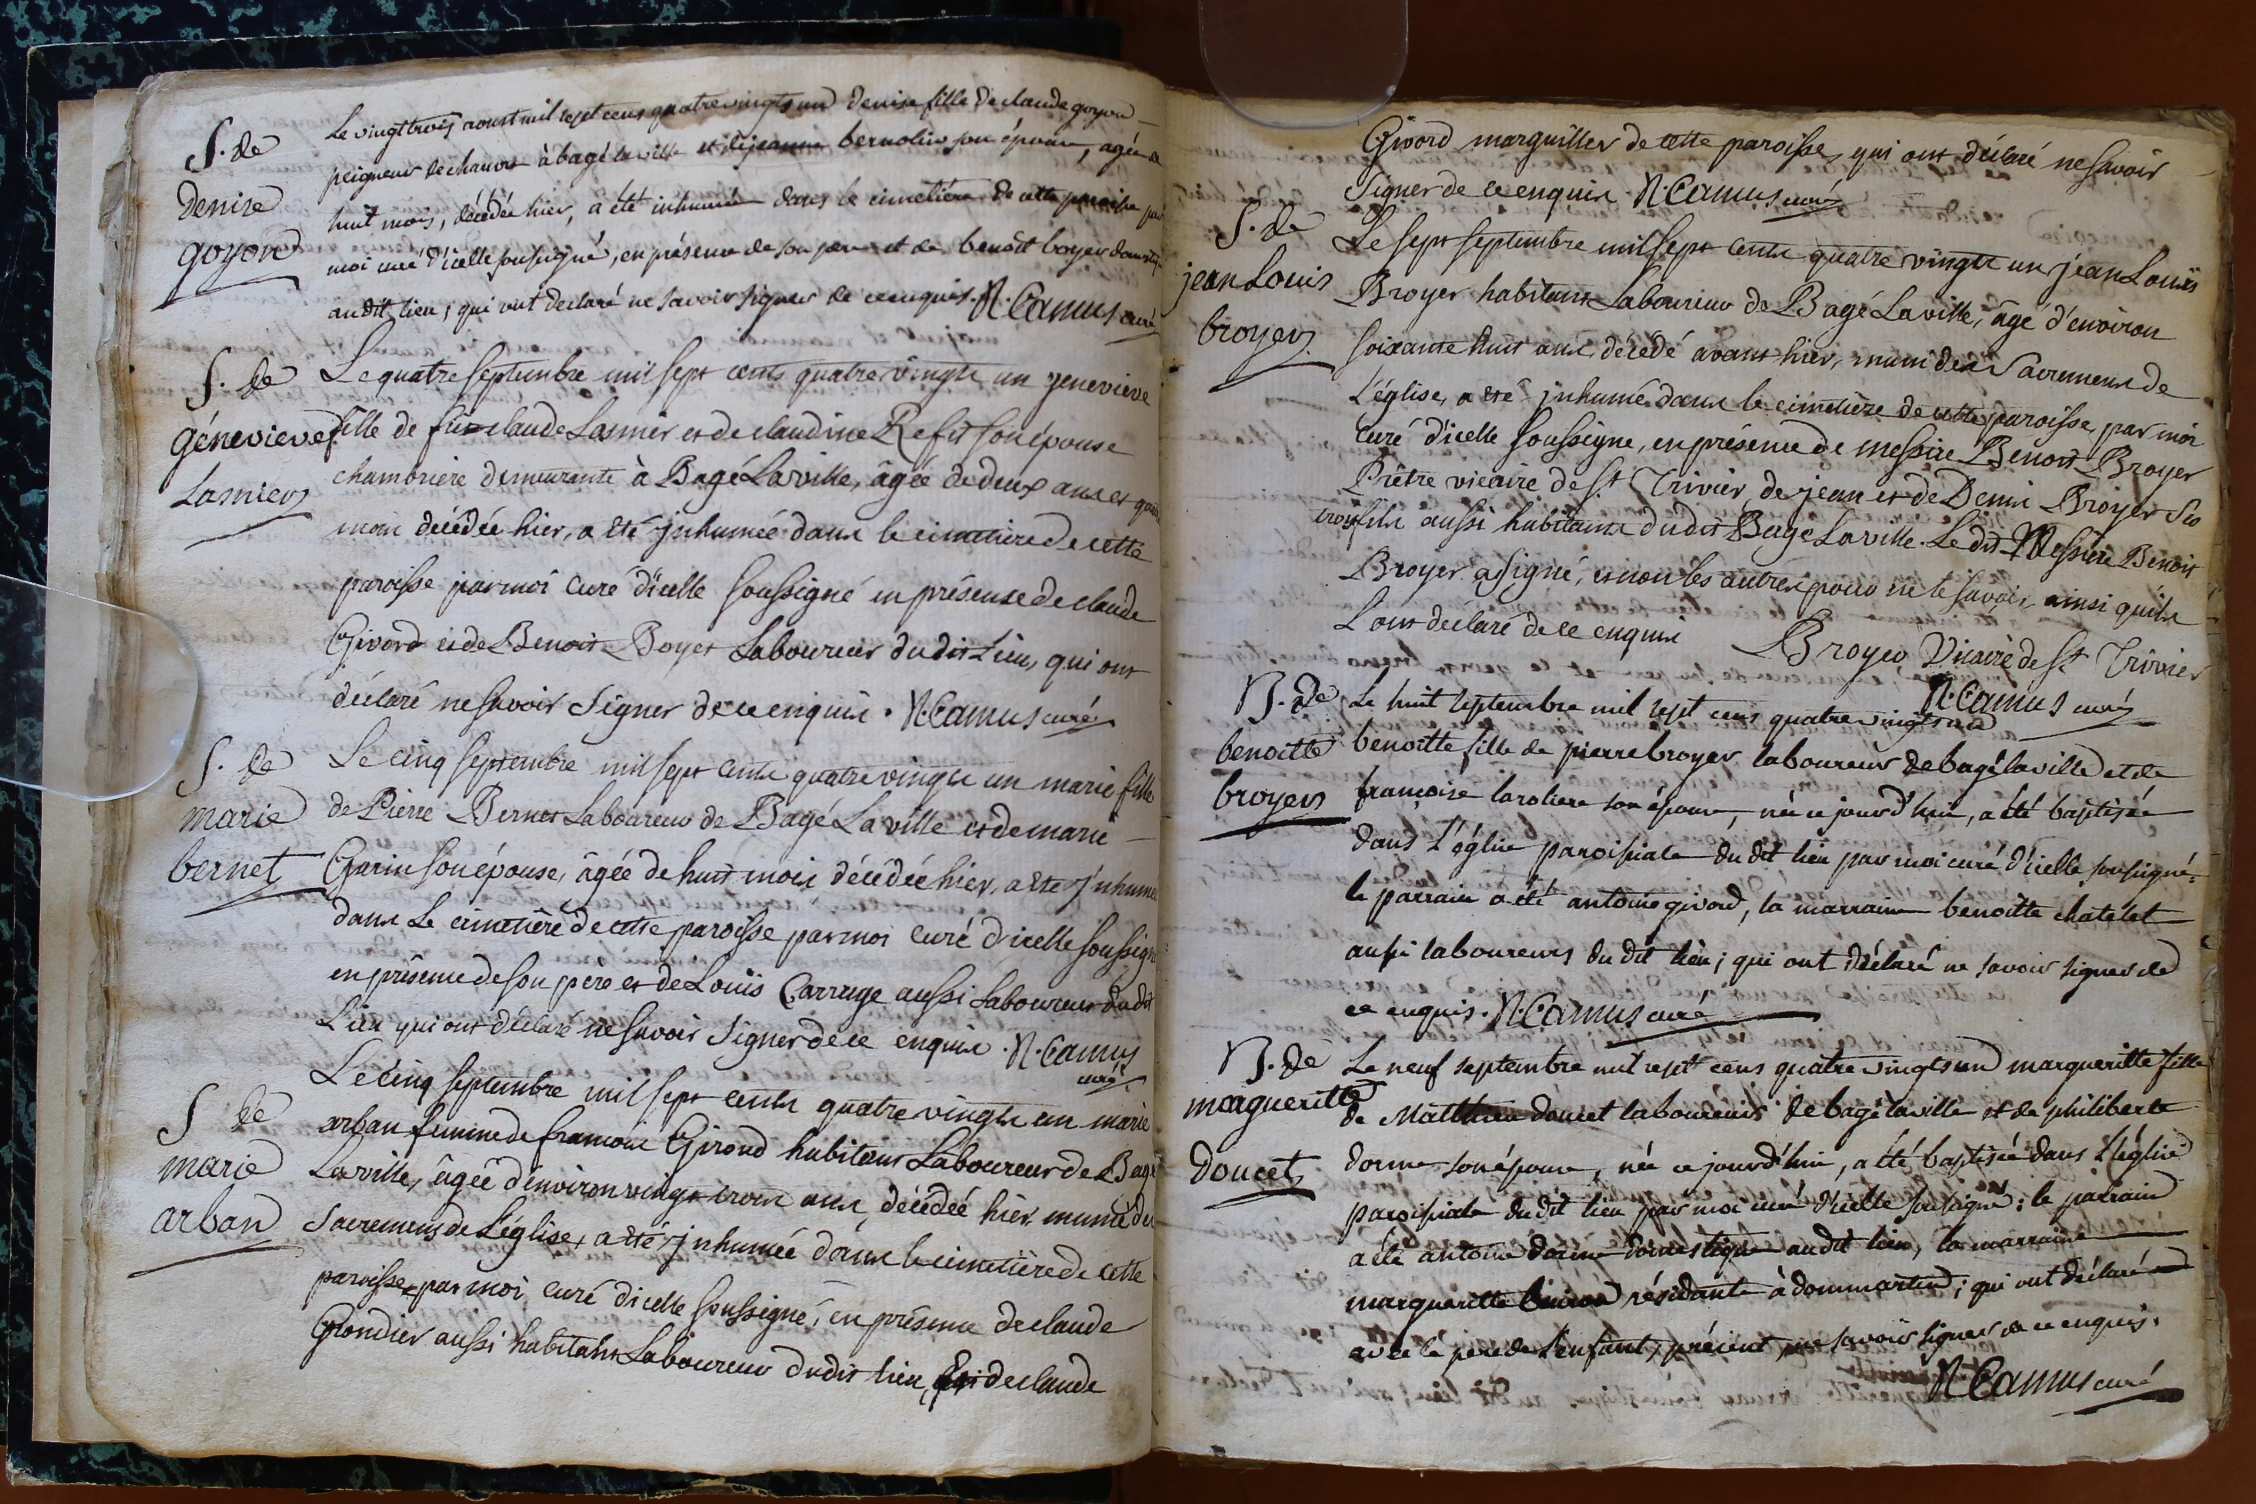 S. de
Denise
goyon
Le vingt trois aoust mil sept cens quatre vingts un denise fille de claude goyon
peigneur de chanvre à bagé la ville et de jeanne bernolin son épouse, agée de
huit mois, décédée hier, a été inhumée dans le cimetière de cette paroisse par
moi curé d'icelle soussigné, en présence de son pere et de benoît boyer domestique
au dit lieu; qui ont declaré ne savoir signer de ce enquis. N. Camus curé
S. de
génevieve
Lasnier
Le quatre septembre mil sept cents quatre vingts un genevieve
fille de feu claude Lasnier et de claudine Refit son épouse
chambriere demeurante à Bagé Laville, âgée de deux ans et
mois décédée hier, a été jnhumée dans le cimetière de cette
paroisse par moi curé d'icelle soussigné en présence de claude
Givord et de Benoit Boyer Laboureur du dit Lieu, qui ont
déclaré ne savoir signer de ce enquis. N. Camus curé
S. de
marie
bernet
Le cinq septembre mil sept cents quatre vingts un marie fille
de Pierre Bernet Laboureur de Bagé La ville et de marie
Garin son épouse, âgée de huit mois décédée hier, a été jnhumée
dans le cimetière de cette paroisse par moi curé d'icelle soussigné
en présence de son père et de Louis Carruge aussi Laboureur du dit
Lieu qui ont déclaré ne savoir signer de ce enquis. N. Camus
curé
S de
marie
arban
Le cinq septembre mil sept cents quatre vingts un marie
arban femme de francois Giroud habitant Laboureur de Bagé
Laville, âgée d'environ vingt trois ans, décédée hier munie des
sacremens de L'église, a été jnhumée dans le cimetière de cette
paroisse par moi curé d'icelle soussigné, en présence de claude
Grondier aussi habitant Laboureur dudit lieu, et de claude
Givord marguiller de cette paroisse, qui ont déclaré ne savoir
signer de ce enquis. N. Camus curé
S. de
jean Louis
broyer
Le sept septembre mil sept cents quatre vingts un jean Louis
Broyer habitant Laboureur de Bagé Laville, âgé d'environ
soixante huit ans, décédé avant hier, muni des Sacremens de
L'église, a été jnhumé dans le cimetière de cette paroisse par moi
curé d'icelle soussigné, en présence de messire Benoit Broyer
Prêtre vicaire de St Trivier, de jean et de Denis Broyer ses
trois fils aussi habitans dudit Bagé Laville. Le dit Messire Benoit
Broyer a signé, et non les autres pour ne le savoir, ainsi qu'ils
L'ont déclaré de ce enquis Broyer Vicaire de St Trivier
N. Camus curé
B. de
benoitte
broyer
Le huit septembre mil sept cens quatre vingts un
benoitte fille de pierre broyer laboureur de bagé la ville et de
francoise laroliere son épouse, née ce jourd'hui, a été baptisée
dans l'église paroissiale du dit lieu par moi curé d'icelle soussigné:
le parrain a été antoine givord, la marraine benoitte chatelet
aussi laboureurs du dit lieu; qui ont déclaré ne savoir signer de
ce enquis. N. Camus curé
B. de
margueritte
doucet
Le neuf septembre mil sept cens quatre vingts un margueritte fille
de Matthieu doucet laboureur de bagé la ville et de philiberte
dorme son épouse, née ce jourd'hui, a été baptisée dans l'église
paroissiale du dit lieu par moi curé d'icelle soussigné: le parrain
a été antoine dorme domestique au dit lieu, la marraine
margueritte résidante à dommartin; qui ont déclaré
avec le père de l'enfant, présent, ne savoir signer de ce enquis.
N. Camus curé